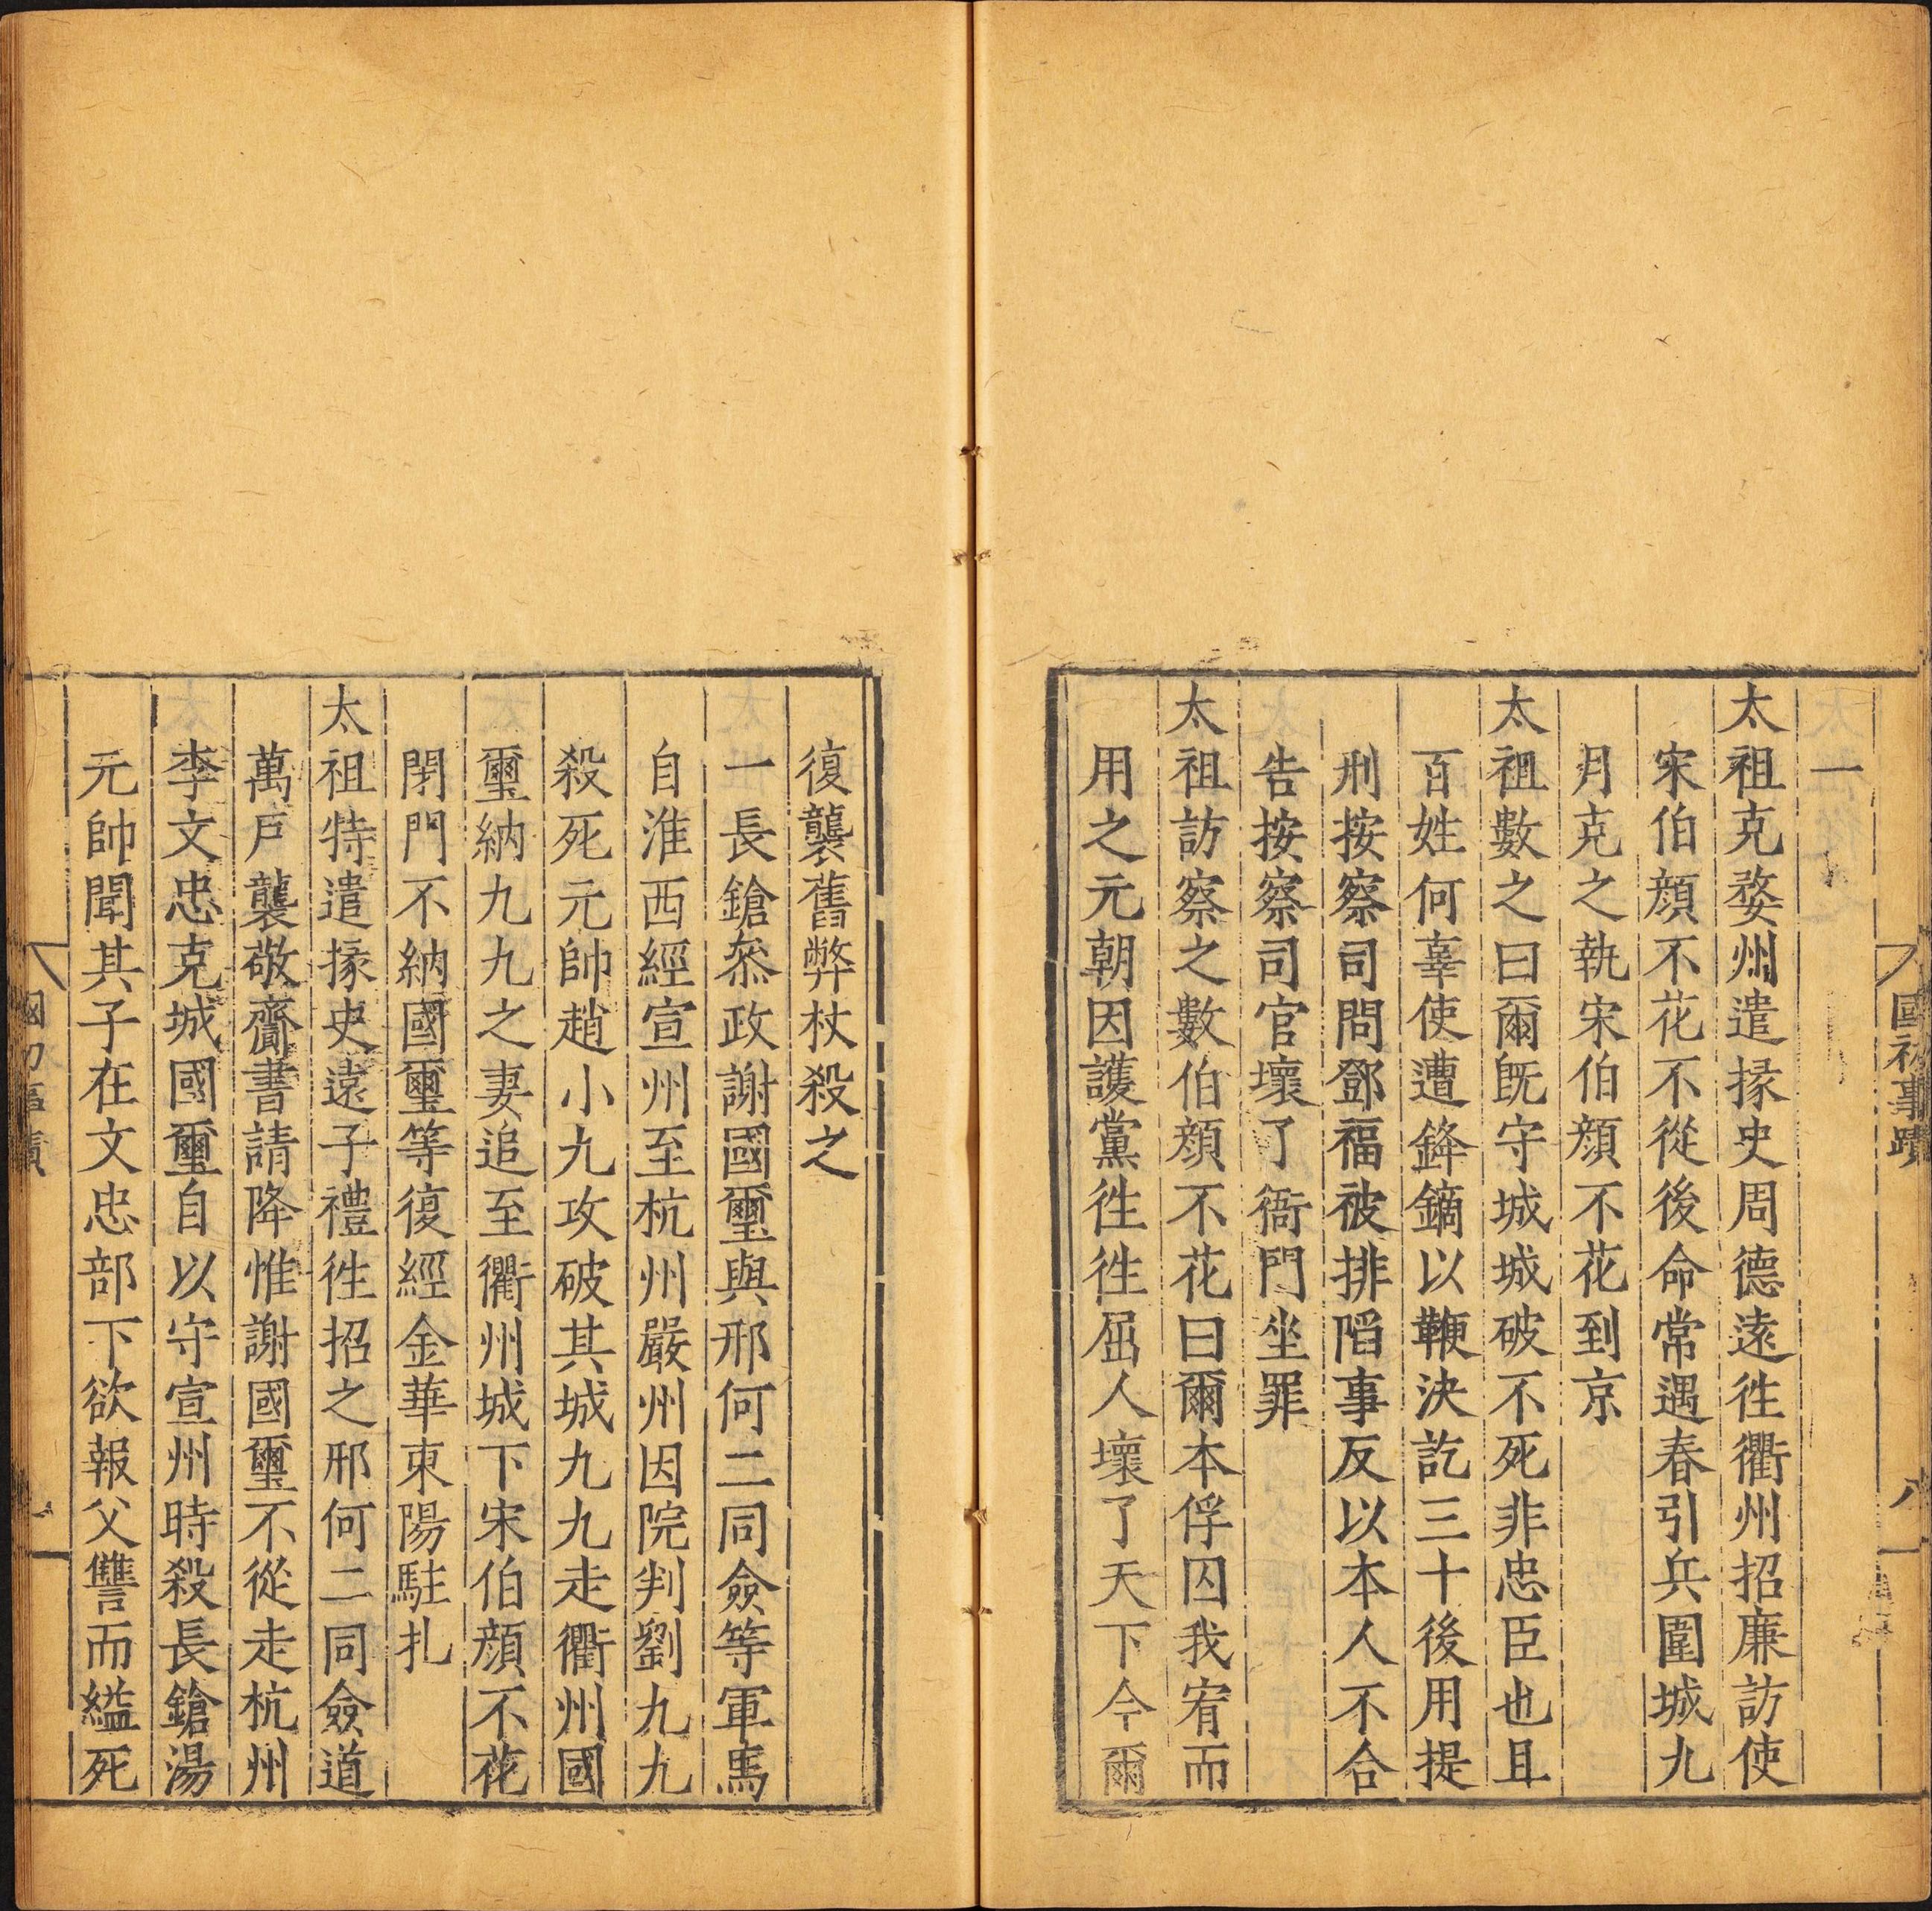 國初事蹟
八
一
太祖克婺州遣掾史周德遠徃衢州招廉訪使
宋伯顔不花不從後命常遇春引兵圍城九
月克之執宋伯顔不花到京
太祖數之曰爾旣守城城破不死非忠臣也且
百姓何辜使遭鋒鏑以鞭決訖三十後用提
刑按察司問鄧福被排陷事反以本人不合
告按察司官壞了衙門坐罪
太祖訪察之數伯顔不花曰爾本俘囚我宥而
用之元朝因護黨徃徃屈人壞了天下今爾
復襲舊弊杖殺之
一長鎗叅政謝國璽與邢何二同僉等軍馬
自淮西經宣州至杭州嚴州因院判劉九九
殺死元帥趙小九攻破其城九九走衢州國
璽納九九之妻追至衢州城下宋伯顔不花
閉門不納國璽等復經金華東陽駐扎
太祖特遣掾史遠子禮徃招之邢何二同僉道
萬戶襲敬齎書請降惟謝國璽不從走杭州
李文忠克城國璽自以守宣州時殺長鎗湯
元帥聞其子在文忠部下欲報父讐而縊死
國初事蹟